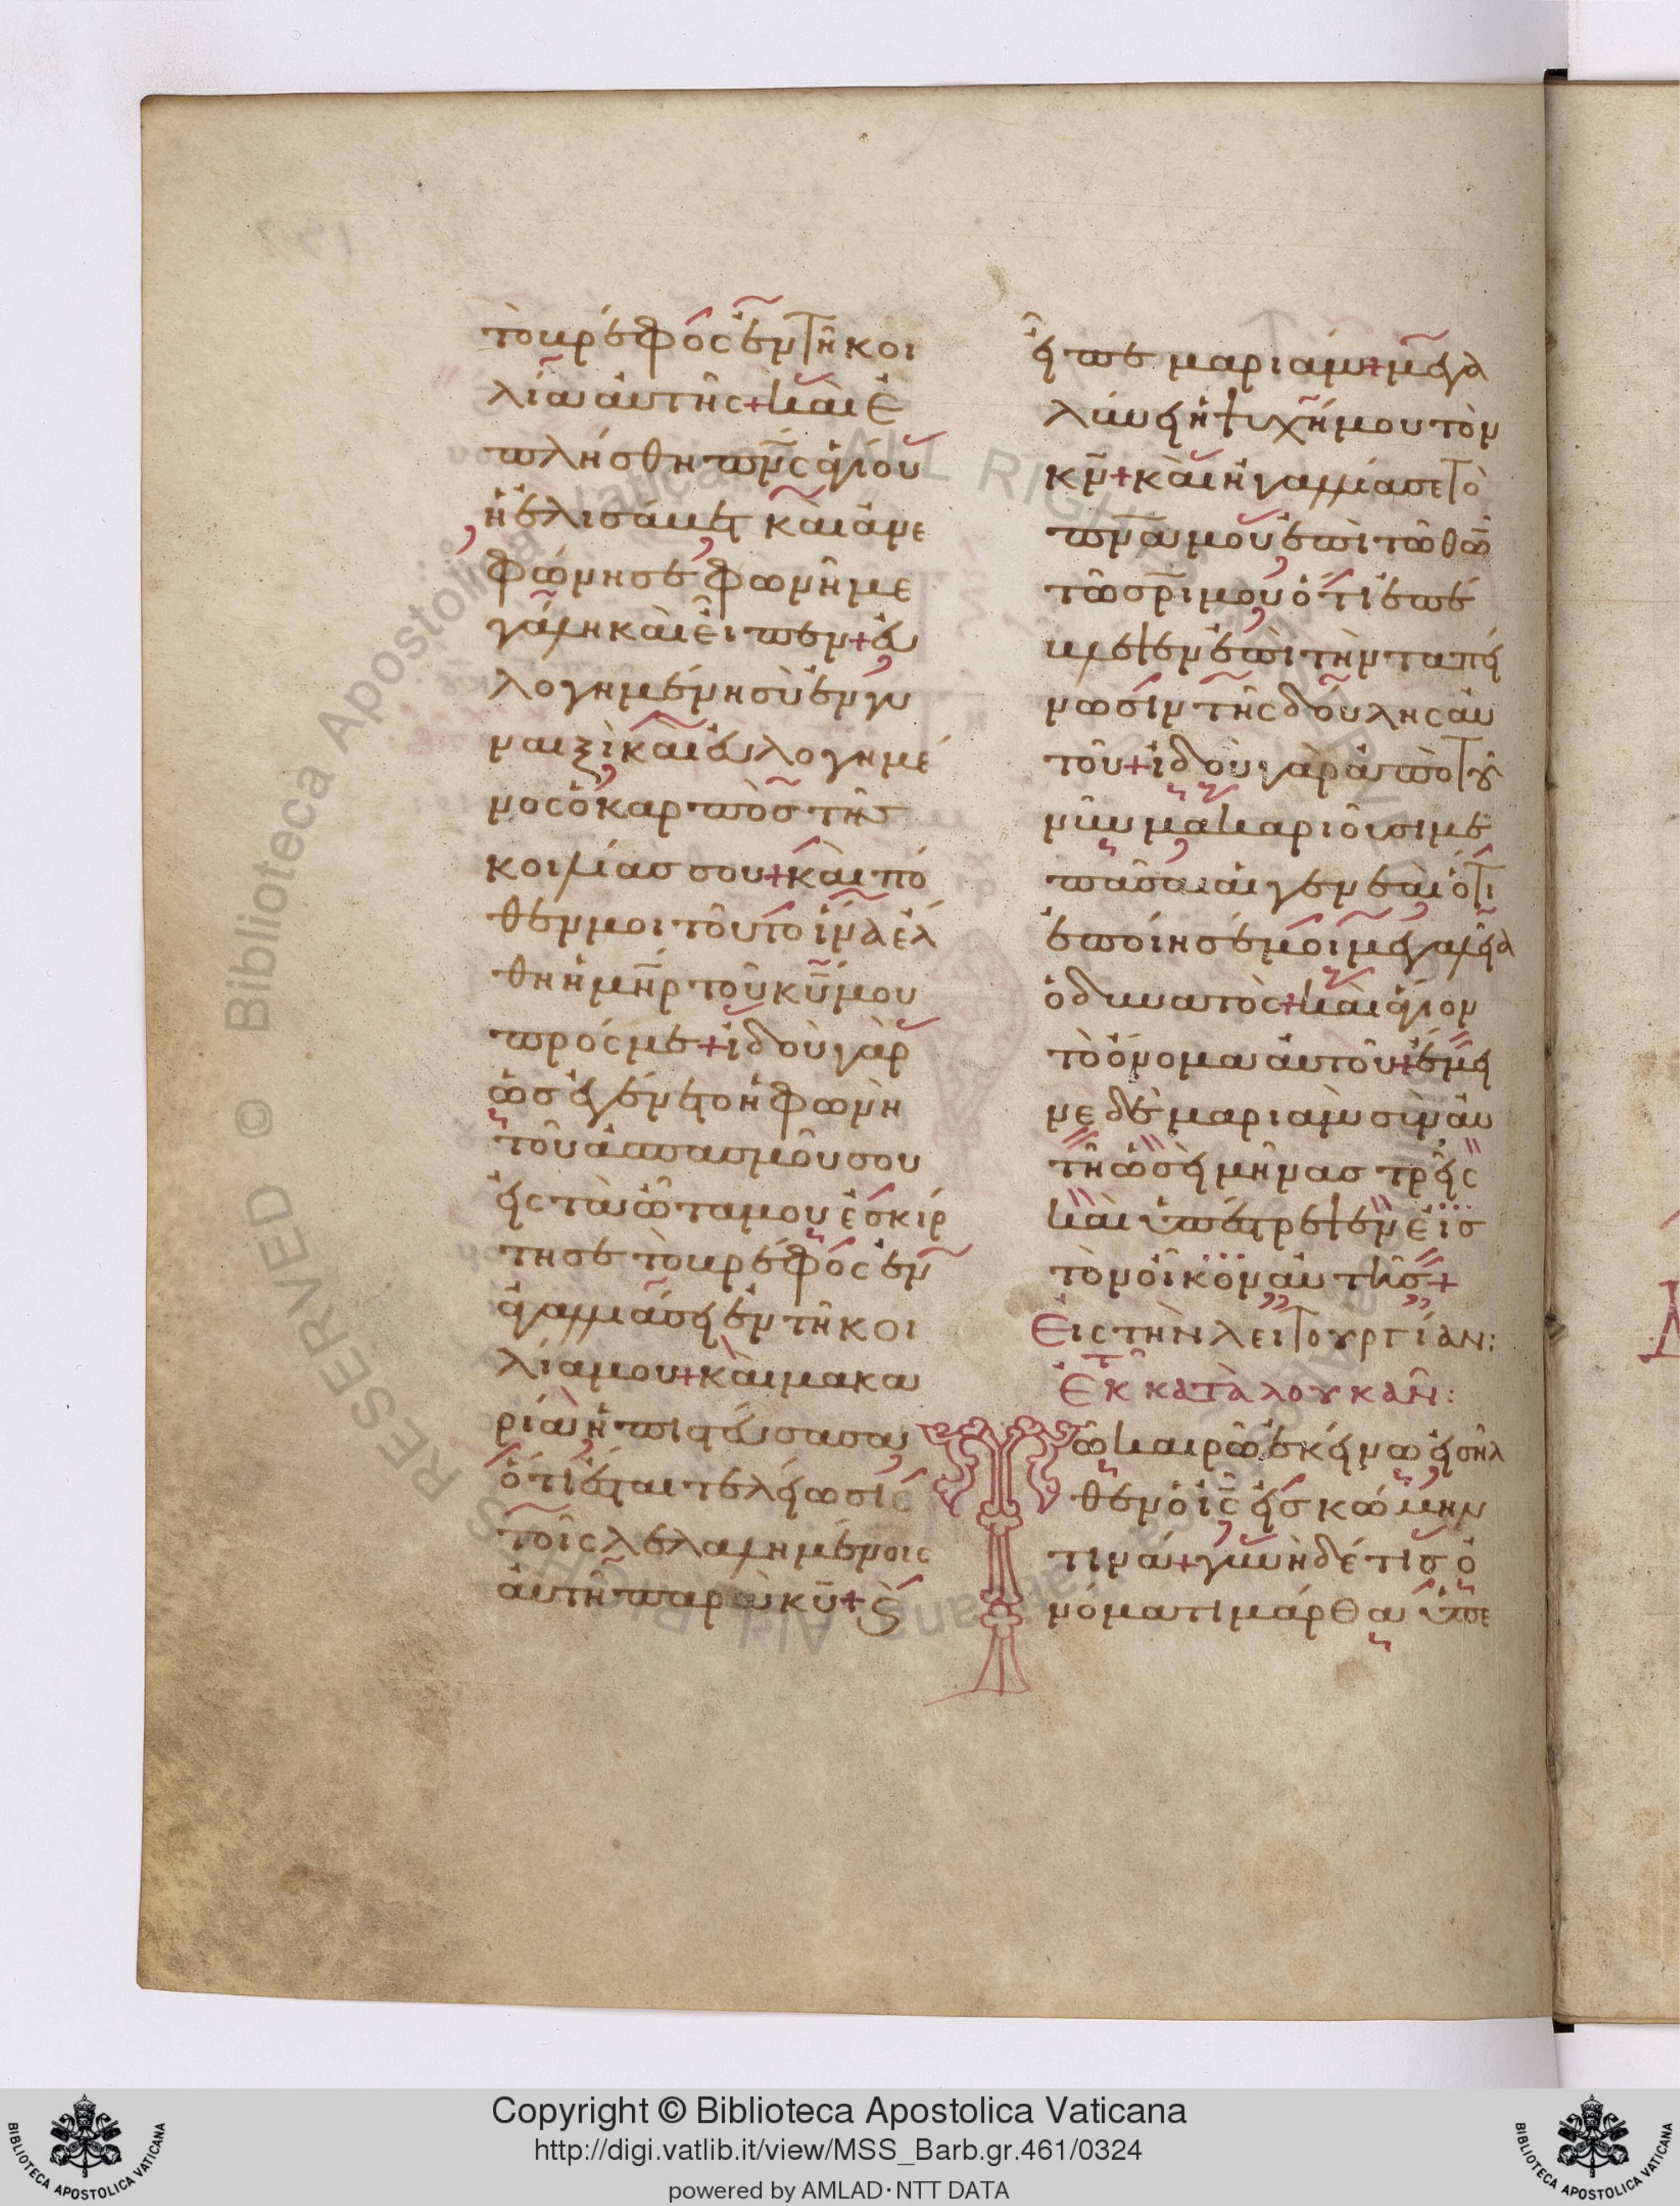 τὸ βρέφος ἐν τῆ κοι
λία αὐτῆς + καὶ ἐ
πλήσθη πν̅ς ἁγίου
ἡ ἐλισάβετ καὶ ἀνε
φώνησε φωνῆ με
γάλη καὶ εἶπεν + εὐ
λογημένη σὺ ἐν γυ
ναιξὶ καὶ εὐλογημέ
νος ὁ καρπὸς τῆς
κοιλίας σου + καὶ πό
θεν μοι τοῦτο ἵνα ἔλ
θη ἡ μη̅ρ τοῦ κυ̅ μου
πρός με + ἰδοὺ γὰρ
ὡς ἐγένετο ἡ φωνὴ
τοῦ ἀσπασμοῦ σου
εἰς τὰ ὦτα μου ἐσκίρ
τησε τὸ βρέφος ἐν
ἀγαλλιάσει ἐν τῆ κοι
λία μου + καὶ μακα
ρία ἡ πιστεύσασα
ὅτι ἔσται τελείωσις
τοῖς λελαλημένοις
αὐτῆ παρὰ κυ̅ + Ϛ
εἶπε μαριάμ + μεγα
λύνει ἡ ψυχή μου τὸν
κν̅ + καὶ ἠγαλλίασε τὸ
πνα̅ μου ἐπὶ τῶ θω̅
τῶ σρι̅ μου ὅτι ἐπέ
βλεψεν ἐπὶ τὴν ταπεί
νωσιν τῆς δούλης αὐ
τοῦ + ἰδοὺ γὰρ ἀπὸ τοῦ
νῦν μακαριοῦσι με
πᾶσαι αἱ γενεαὶ ὅτι
ἐποίησέ μοι μεγαλεῖα
ὁ δυνατὸς + καὶ ἅγιον
τὸ ὄνομα αὐτοῦ + ἔμει
νε δὲ μαριὰμ σὺν αὐ
τῆ ὡσεὶ μῆνας τρεῖς
καὶ ὑπέστρεψεν εἰς
τὸν οἶκον αὐτῆς +
Εἰς τὴν λειτουργίαν:
Ἐκ τοῦ κατὰ λουκᾶν:
Τῶ καιρῶ ἐκείνω εἰσῆλ
θεν ὁ ι̅ς̅ εἰς κώμην
τινά + γυνὴ δέ τις ὀ
νόματι μάρθα ὑπε